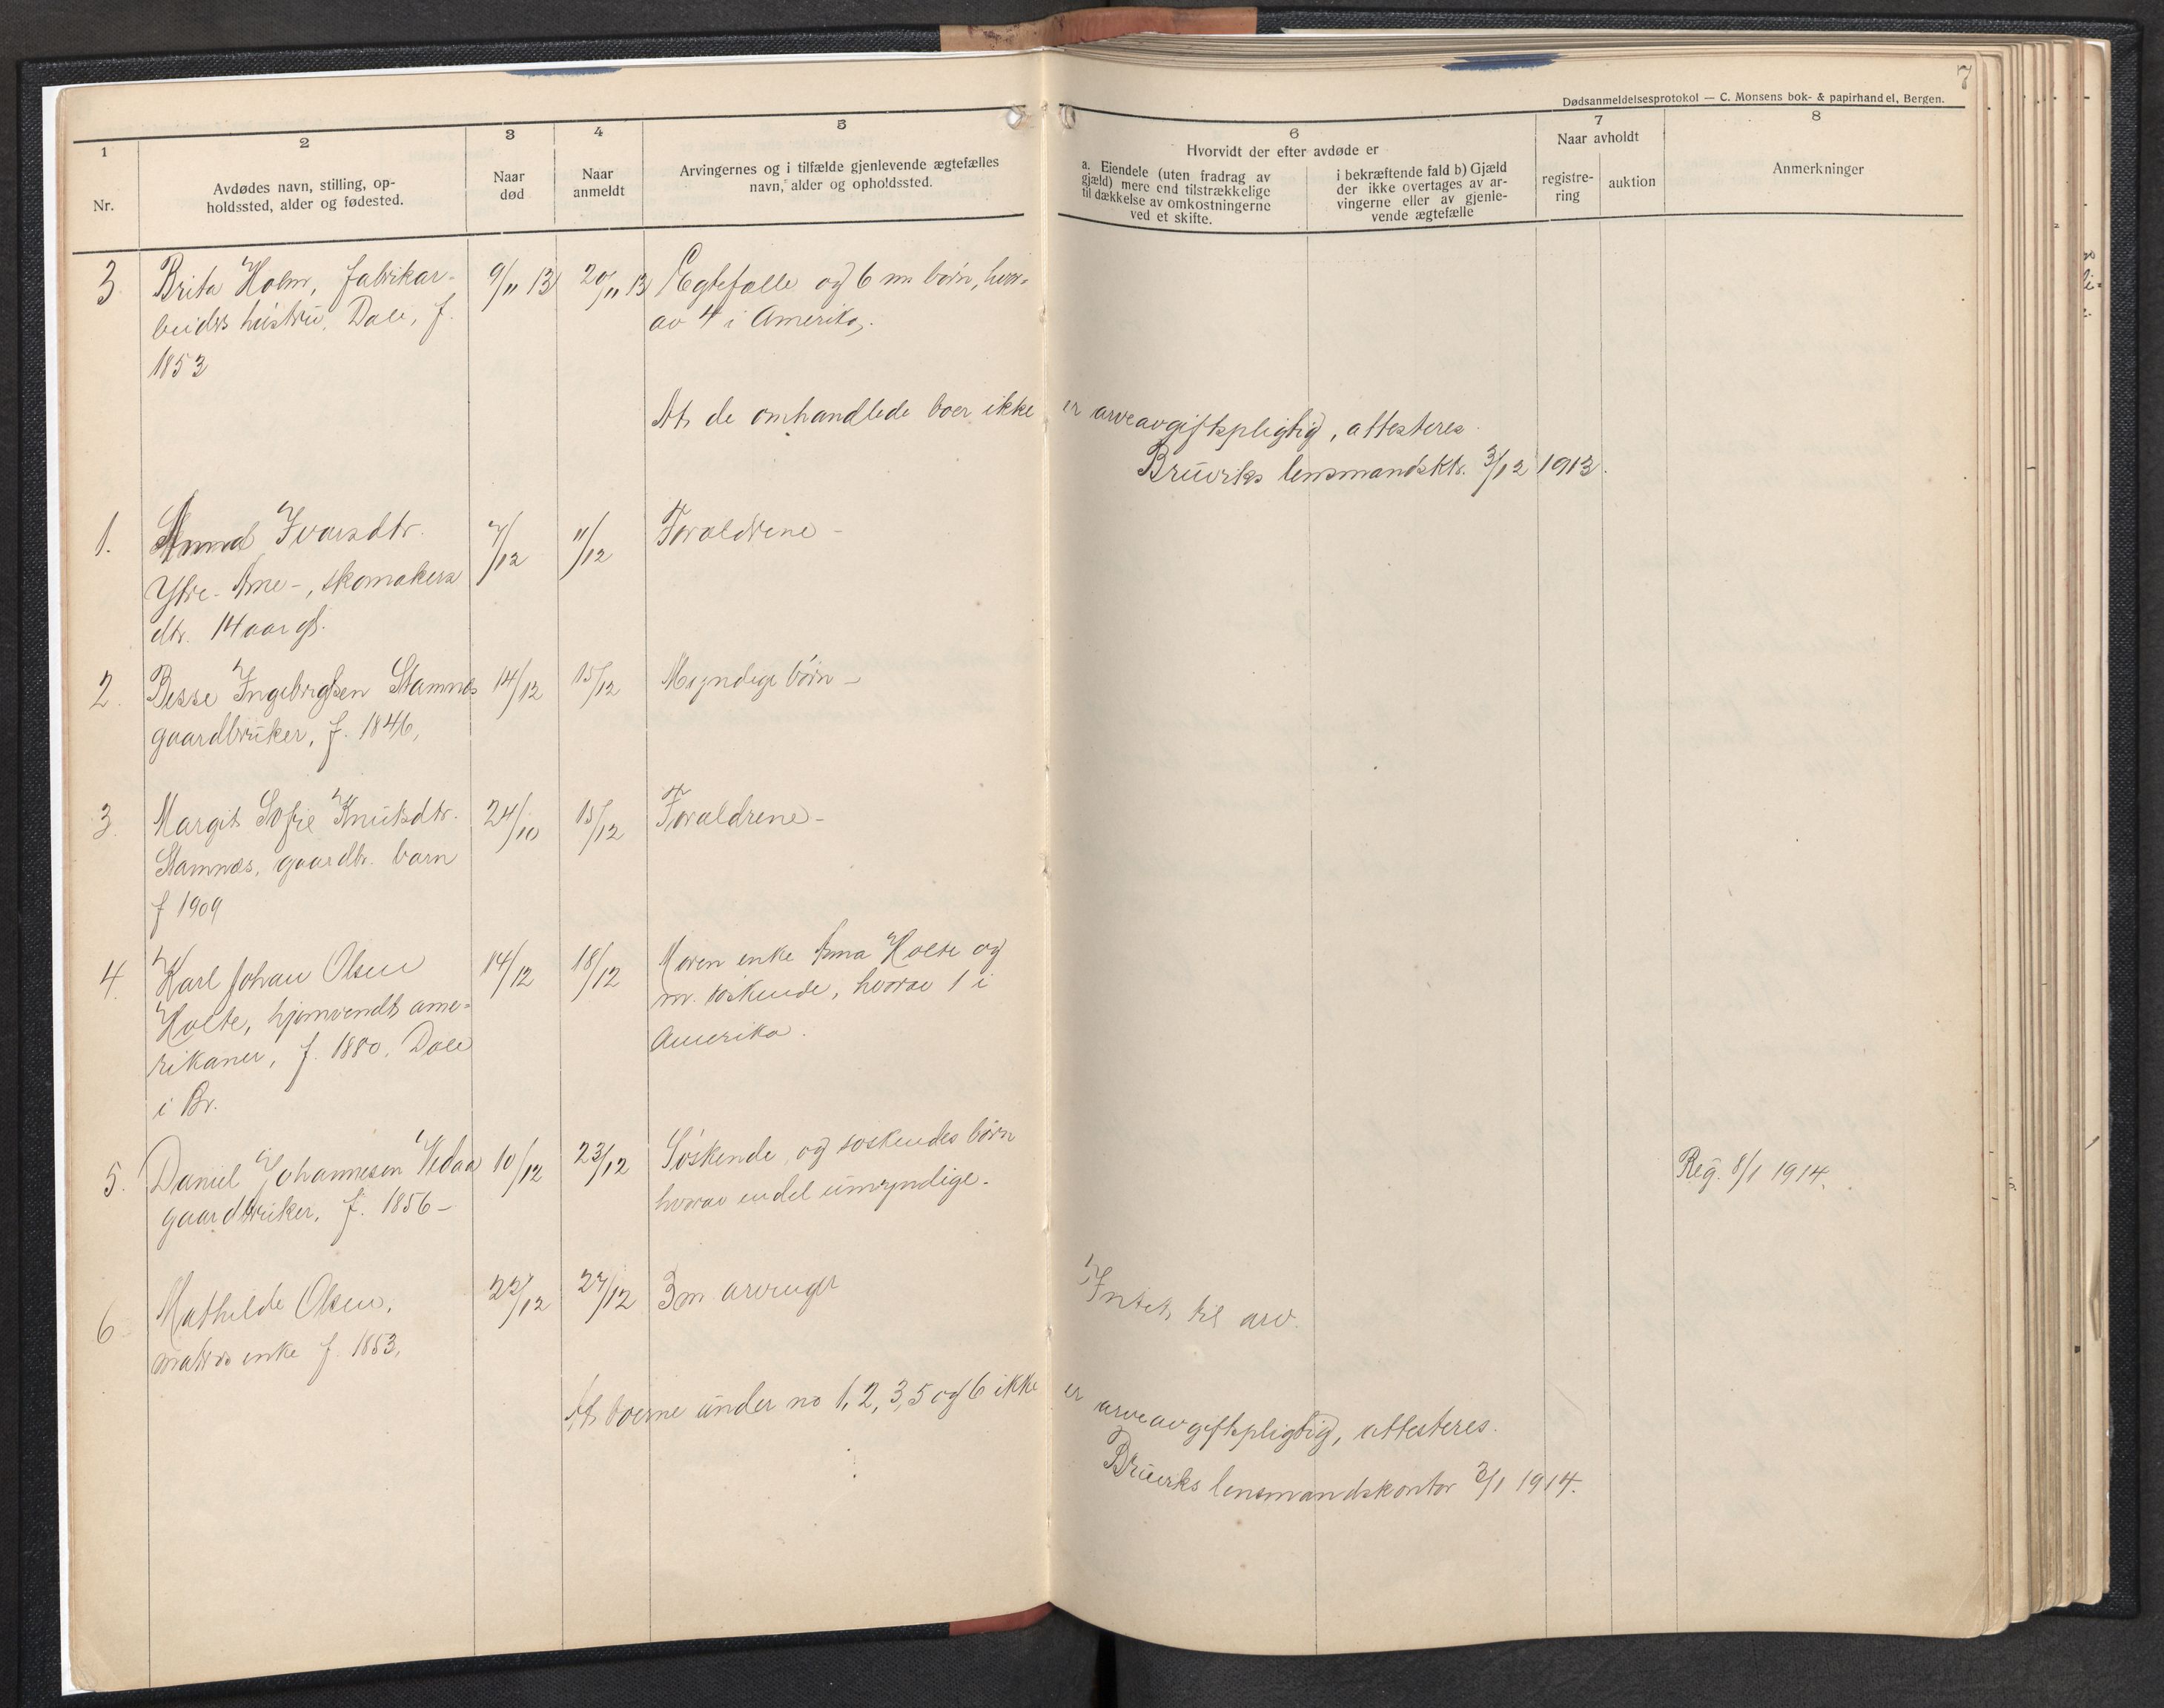 7
Dødsanmeldelsesprotokol — C. Monsens bok- & papirhandel, Bergen.
1
Nr.
2
Avdødes navn, stilling, op-
holdssted, alder og fødested.
3
Naar
død
4
Naar
anmeldt
5
Arvingernes og i tilfælde gjenlevende ægtefælles
navn, alder og opholdssted.
6
Hvorvidt der efter avdøde er
a. Eiendele (uten fradrag av
gjæld) mere end tilstrækkelige
til dækkelse av omkostningerne
ved et skifte.
i bekræftende fald b) Gjæld
der ikke overtages av ar-
vingerne eller av gjenle-
vende ægtefælle
7
Naar avholdt
registre-
ring
auktion
8
Anmerkninger
3 Brita Holm, fabrikar- 9/11 13 20/11 13 Ægtefælle og 6 m børn, hvor-
beiders hustru, Dale, f. av 4 i Amerika.
1853
At de omhandlede boer ikke er arveavgiftspligtig, attesteres
Bruviks lensmandsktr. 3/12 1913.
1. Anna Ivarsdtr. 7/12 11/12 Forældrene -
Ytre-Arne-, skomakers
dtr. 14 aar gl.
2. Besse Ingebrigtsen Stamnes 14/12 15/12 Myndige børn -
gaardbruker, f. 1846,
3. Margit Sofie Knutsdtr. 24/10 15/12 Forældrene -
Stamnæs, gaardbr. barn
f 1909
4. Karl Johan Olsen 14/12 18/12 Moren enke Anna Holte og
Holte, hjemvendt ame- m. søskende, hvorav 1 i
rikaner, f. 1880. Dale Amerika.
i Br.
5. Daniel Johannesen Vedaa 10/12 23/12 Søskende og søskendes børn Reg. 8/1 1914.
gaardbruker, f. 1856 - hvorav endel umyndige.
6 Mathilde Olsen, 22/12 27/12 3 m arvinger Intet til arv.
matros enke f. 1853,
At boerne under no 1, 2, 3, 5 og 6 ikke er arveavgiftspligtig, attesteres.
Bruviks lensmandskontor 3/1 1914.